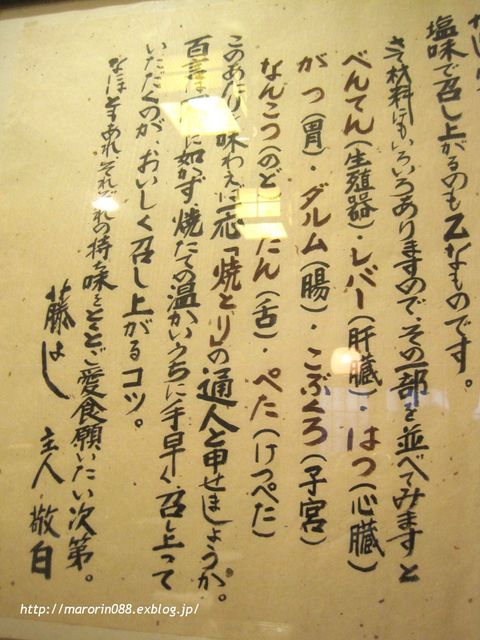 塩味で召し上がるのも乙なものです。
さて材料にもいろいろありますので、その一部を並べてみますと
べんてん(生殖器)・レバー(肝臓)・はつ(心臓)
がつ(胃)・ダルム(腸)・こぶくろ(子宮)
なんこつ(のど たん(舌)・ぺた(けつぺた)
このあたり 味わえば一応「焼とり」の通人と申せましょうか。
百言は に如かず、焼たての温かいうちに手早く召し上って
いただくのが、おいしく召し上がるコツ。
なにはともあれ、それぞれの持ち味をとくとご愛食願いたい次第。
藤よし 主人・敬白
http://marorin088.exblog.jp/